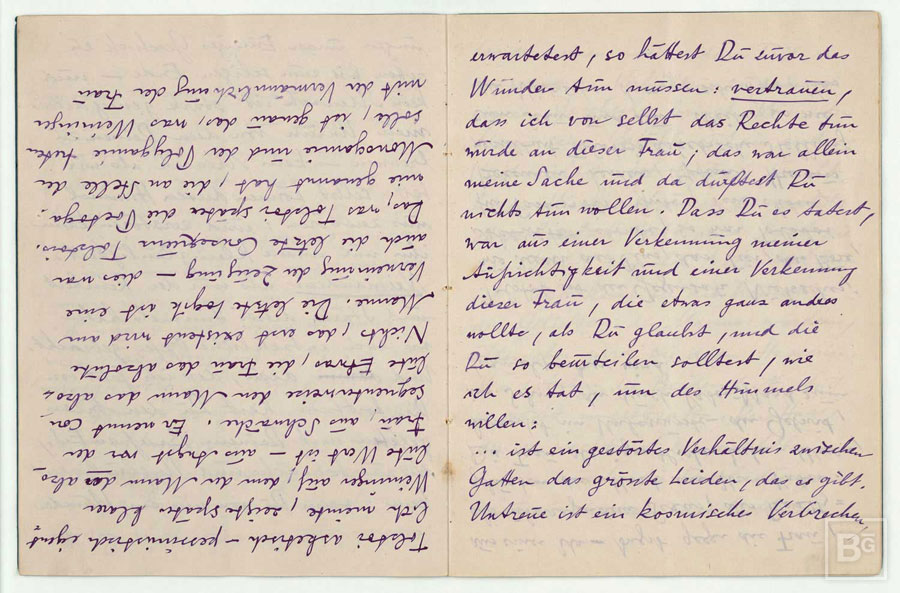 Tolstoi asketisch – pessimistisch eigent=
lich meinte, zeigte später klarer
Weininger auf, dem der Mann das abso-
lute Wert ist – aus Angst vor der
Frau, aus Schwäche. Er nennt con
sequenterweise den Mann das abso=
lute Etwas, die Frau das absolute
Nichts, das erst existent wird am
Manne. Die letzte Logik ist eine
Verneinung der Zeugung – dies war
auch die letzte Consequenz Tolstois.
Das, was Tolstoi später die
mie genannt hat, die an Stelle der
Monogamie und der Polygamie treten
solle, ist genau das, was Weininger
mit der Vermännlichung der Frau
erwartetest, so hättest Du zuvor das
Wunder tun müssen: vertrauen,
dass ich von selbst das Rechte tun
würde an dieser Frau; das war allein
meine Sache und da durftest Du
nichts tun wollen. Dass Du es tatest,
war aus einer Verkennung meiner
Aufrichtigkeit und einer Verkennung
dieser Frau, die etwas ganz andres
wollte, als Du glaubst, und die
Du so beurteilen solltest, wie
ich es tat, um des Himmels
willen:
... ist ein gestörtes Verhältnis zwischen
Gatten das grösste Leiden, das es gibt.
Untreue ist ein kosmisches Verbrechen,
BG